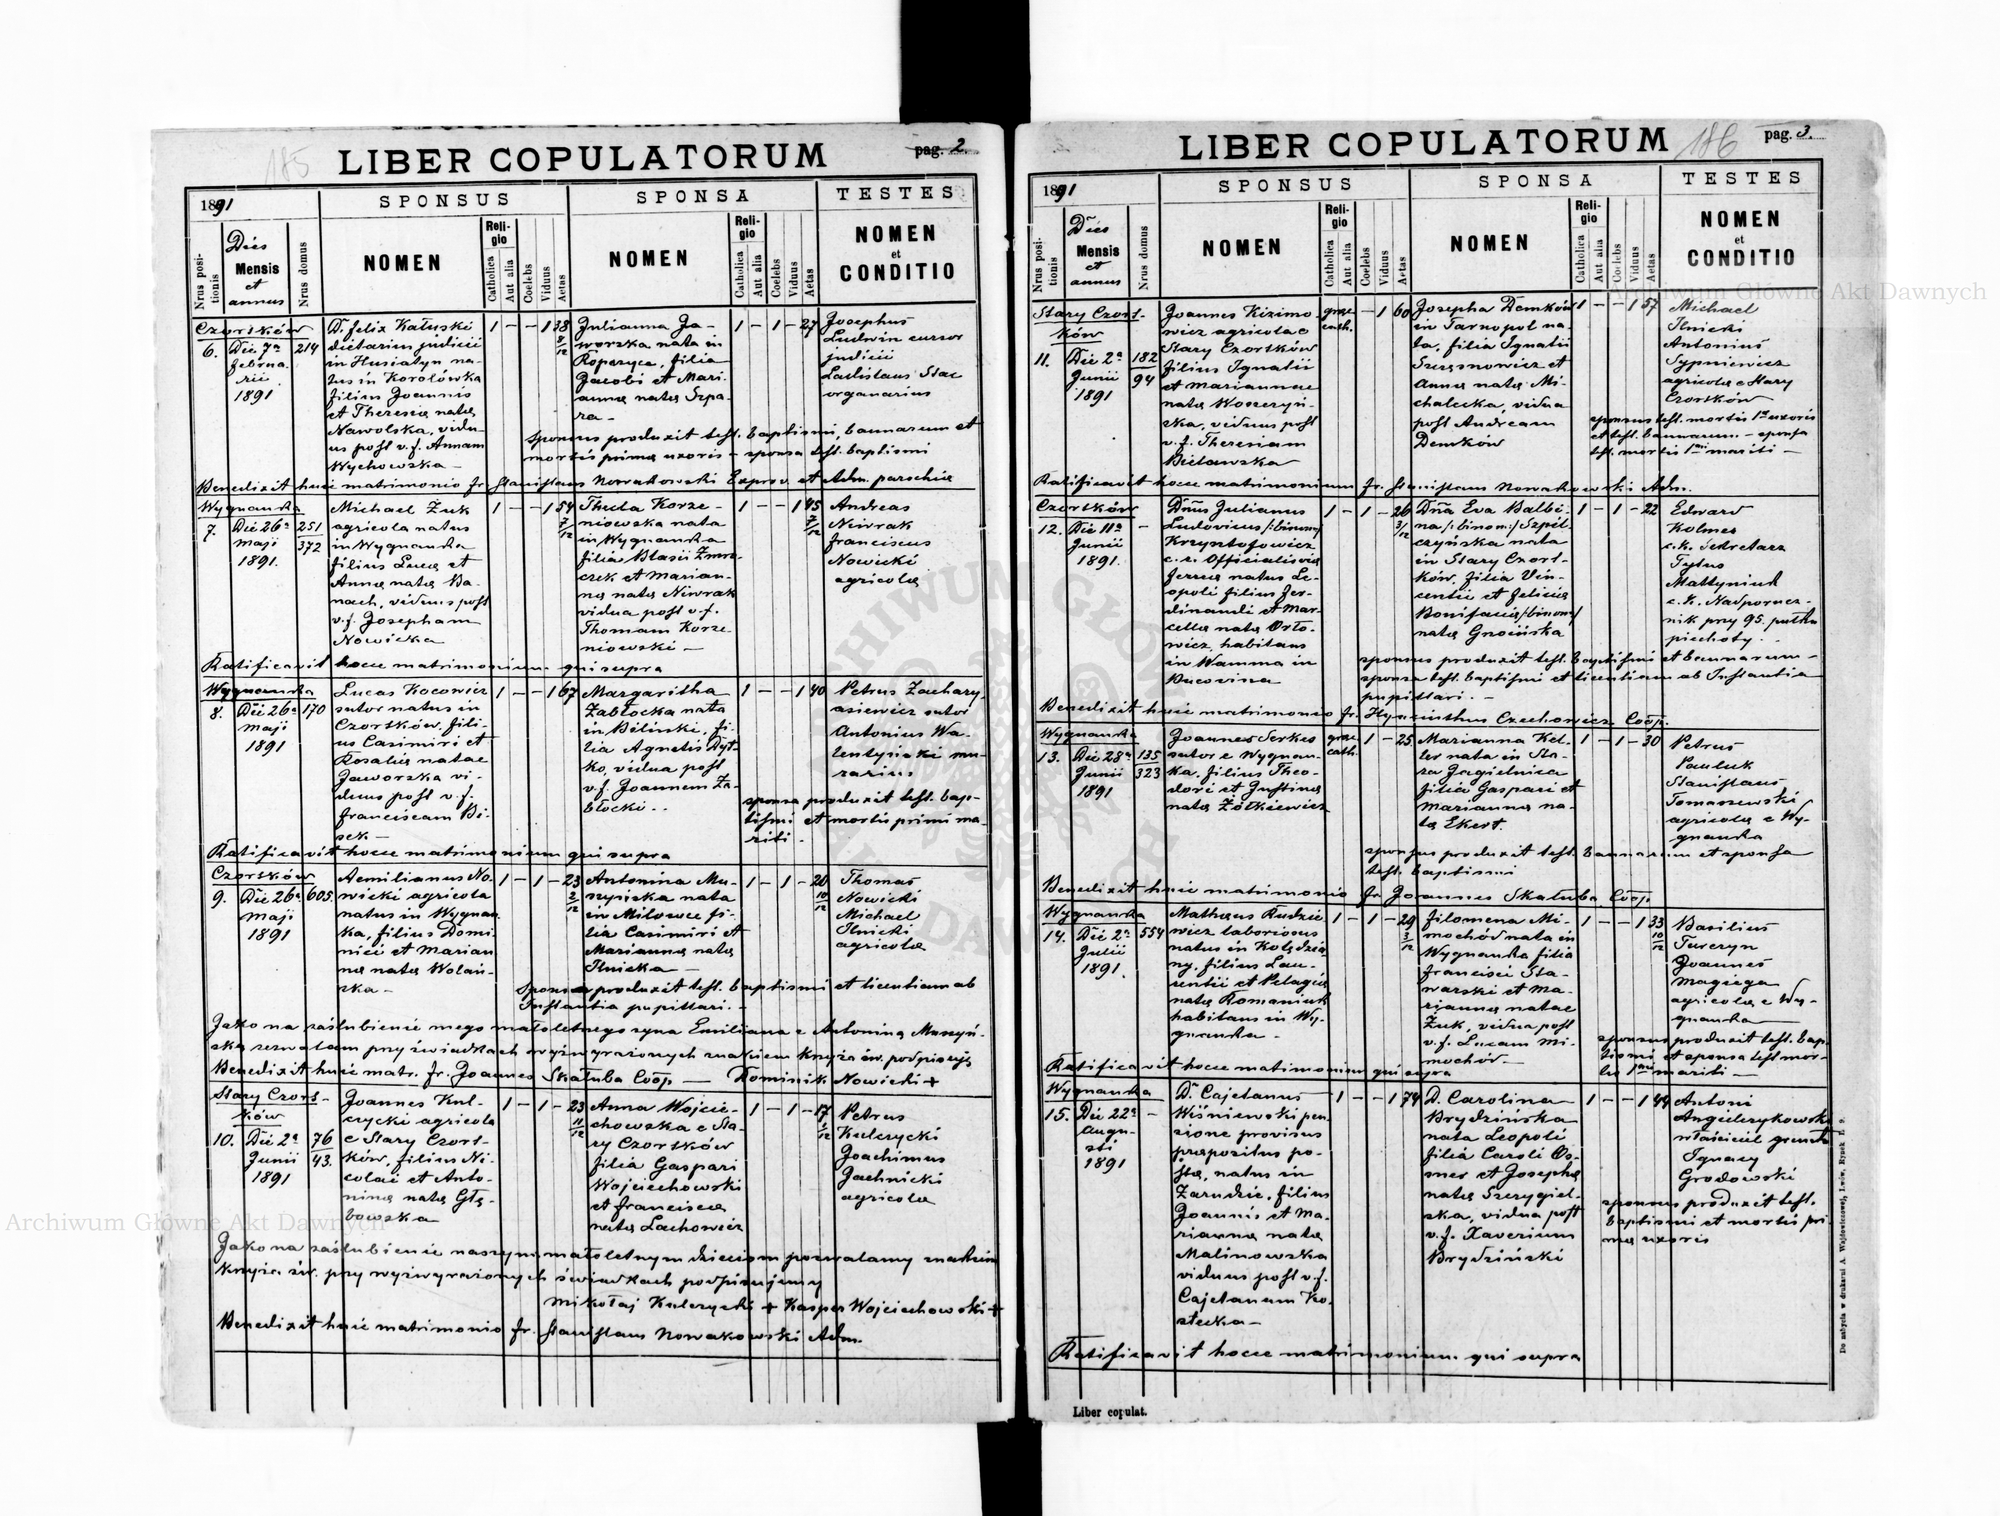 185
LIBER COPULATORUM
pag. 2.
1891
SPONSUS
SPONSA
TESTES
Nrus positionis
Dies
Mensis
et
annus
Nrus domus
NOMEN
Religio
Catholica
Aut alia
Coelebs
Viduus
Aetas
NOMEN
Religio
Catholica
Aut alia
Coelebs
Viduus
Aetas
NOMEN
et
CONDITIO
Czortków
6. Die 7a
februa
rii
1891
214
D. felix Kałuski
dietarius judicii
in Husiatyn na-
tus in Korolówka
filius Joannis
et Theresiæ natæ
Nawolska, vidu-
us post v.f. Annam
Wychowska –
1 – – 1 38
Julianna Ja-
worska nata in
Kopazyce, filia
Jacobi et Mari-
annæ natæ Szpa-
ra –
1 – 1 – 27
Josephus
Ludwin cursor
judicii
Ladislaus Stac
organarius
sponsus produxit test. baptismi, bannorum et
mortis primæ uxoris – sponsa test. baptismi
Benedixit huic matrimonio fr. Stanislaus Nowakowski Exprov. et Adm. parochiæ
Wygnanka
7. Die 26a
maji
1891.
251
372
Michael Żuk
agricola natus
in Wygnanka
filius Lucæ et
Annæ natæ Ba-
nach, viduus post
v.f. Josepham
Nowicka
1 – – 1 54
7/12
Thecla Korze-
niowska nata
in Wygnanka
filia Blasii Zmro
czek et Marian-
næ natæ Niwrak
vidua post v.f.
Thomam Korze-
niowski –
1 – – 1 45
7/12
Andreas
Niwrak
franciscus
Nowicki
agricolæ
Ratificavit hocce matrimonium qui supra
Wygnanka
8. Die 26a
maji
1891
170
Lucas Kocowicz
sutor natus in
Czortków, fili-
us Casimiri et
Rosaliæ natae
Jaworska vi-
duus post v.f.
franciscam Bi-
sek –
1 – – 1 67
Margaritha
Zabłocka nata
in Beliński, fi-
lia Agnetis Dyt-
ko, vidua post
v.f. Joannem Za-
błocki . .
1 – – 1 40
Petrus Zachary,
asiewicz sutor
Antonius Wa-
lentyński mu-
rarius
sponsa produxit test. bap-
tismi et mortis primi ma-
riti –
Ratificavit hocce matrimonium qui supra
Czortków
9. Die 26a
maji
1891
605.
Aemilianus No-
wicki agricola
natus in Wygnan-
ka, filius Domi-
nici et Marian
næ natæ Wolań-
ska –
1 – 1 – 23
2/12
Antonina Mu-
szyńska nata
in Milowce fi-
lia Casimiri et
Mariannæ natæ
Ilnicka –
1 – 1 – 20
10/12
Thomas
Nowicki
Michael
Ilnicki
agricolæ
Sponsa produxit test. baptismi et licentiam ab
Instantia pupillari. –
Jako na zaślubienie mego małoletnego syna Emiliana z Antoniną Muszyń-
ską zezwalam przy świadkach wyżwyrażonych znakiem krzyża św. podpisuję
Benedixit huic matr. fr. Joannes Skałuba Coop — Dominik Nowicki +
Stary Czort-
ków
10. Die 2a
Junii
1891
76
43.
Joannes Kul-
czycki agricola
e Stary Czort-
ków, filius Ni-
colai et Anto-
ninæ natæ Głę-
bowska –
1 – 1 – 23
11/12
Anna Wojcie-
chowska e Sta-
ry Czortków
filia Gaspari
Wojciechowski
et franciscæ
natæ Lachowicz
1 – 1 – 17
Petrus
Kulczycki
Joachimus
Jachnicki
agricolæ
Jako na zaślubienie naszym małoletnym dzieciom pozwalamy znakiem
krzyża św. przy wyżwyrażonych świadkach podpisujemy
Mikołaj Kulczycki + Kasper Wojciechowski +
Benedixit huic matrimonio fr. Stanislaus Nowakowski Adm.
186
LIBER COPULATORUM
pag. 3.
1891
SPONSUS
SPONSA
TESTES
Nrus positionis
Dies
Mensis
et
annus
Nrus domus
NOMEN
Religio
Catholica
Aut alia
Coelebs
Viduus
Aetas
NOMEN
Religio
Catholica
Aut alia
Coelebs
Viduus
Aetas
NOMEN
et
CONDITIO
Stary Czort-
ków
11. Die 2a
Junii
1891
182
94
Joannes Kizimo
wicz agricola e
Stary Czortków
filius Ignatii
et Mariannae
natæ Woszczyń-
ska, viduus post
v.f. Theresiam
Bielawska
græc
cath.
– 1 60
Josepha Demków
in Tarnopol na-
ta, filia Ignatii
Szczęsnowicz et
Annæ natæ Mi-
chalecka, vidua
post Andream
Demków
1 – – 1 57
Michael
Ilnicki
Antonius
Sypniewicz
agricolæ e Stary
Czortków
sponsus test. mortis 1mæ uxoris
et test. bannorum. – sponsa
test. mortis 1mi mariti –
Ratificavit hocce matrimonium fr. Stanislaus Nowakowski Adm.
Czortków
12. Die 11a
Junii
1891.
–
Dnus Julianus
Ludovicus /:binom:/
Krzysztofowicz
c.r. Officialis viæ
ferreæ natus Le-
opoli filius fer-
dinandi et Mar-
cellæ natæ Orto-
wicz, habitans
in Wamma in
Bucovina
1 – 1 – 26
3/12
Dna Eva Balbi-
na /:binom:/ Szpil-
czyńska nata
in Stary Czort-
ków, filia Vin-
centii et feliciæ
Bonifaciæ /:binom:/
natæ Gnoińska
1 – 1 – 22
Edward
Kolmer
c.k. Sekretarz
Tytus
Mattyniuk
c.k. Nadporucz-
nik przy 95. pułku
piechoty .
sponsus produxit test. baptismi et bannorum –
sponsa test. baptismi et licentiam ab Instantia
pupillari. –
Benedixit huic matrimonio fr. Hyacinthus Czechowicz Coop.
Wygnanka
13. Die 28a
Junii
1891
135
323
Joannes Serkes
sutor e Wygnan-
ka, filius Theo-
dori et Justinæ
natæ Żółkiewicz
græc
cath.
1 – 25.
Marianna Kel-
ler nata in Sta-
ra Jagielnica
filia Gaspari et
Mariannæ na-
tæ Ekert.
1 – 1 – 30
Petrus
Pauluk
Stanislaus
Tomaszewski
agricolæ e Wy-
gnanka
sponsus produxit test. bannorum et sponsa
test. baptismi
Benedixit huic matrimonio fr. Joannes Skałuba Coop.
Wygnanka
14. Die 2a
Julii
1891.
554
Mathæus Kudzie
wicz laboriosus
natus in Kolędzia
ny, filius Lau-
rentii et Pelagiæ
natæ Romaniuk
habitans in Wy-
gnanka –
1 – 1 – 29
3/12
filomena Mi-
mochód nata in
Wygnanka filia
francisci Sta-
warski et Ma-
riannæ natae
Żuk, vidua post
v.f. Lucam Mi-
mochód –
1 – – 1 33
10/12
Basilius
Turczyn
Joannes
Magiega
agricolæ e Wy-
gnanka
sponsus produxit test. bap-
tismi et sponsa test. mor-
tis 1mi mariti –
Ratificavit hocce matrimonium qui supra
Wygnanka
15. Die 22a
Augu-
sti
1891
–
D. Cajetanus
Wiśniewski pen-
sione provisus
præpositus po-
stæ, natus in
Zarudzie, filius
Joannis et Ma-
riannæ natæ
Malinowska
viduus post v.f.
Cajetanam Ko-
stecka –
1 – – 1 74
D. Carolina
Brydzińska
nata Leopoli
filia Caroli Os-
mer et Josephæ
natæ Szczygiel-
ska, vidua post
v.f. Xaverium
Brydziński
1 – – 1 44
Antoni
Angielczykowski
właściciel gruntu
Ignacy
Grodowski
sponsus produxit test.
baptismi et mortis pri-
mæ uxoris
Ratificavit hocce matrimonium qui supra
Liber copulat.
Do nabycia w drukarni A. Wajdowiczowej, Lwów, Rynek l. 9.
Archiwum Główne Akt Dawnych
Archiwum Główne Akt Dawnych
ARCHIWUM GŁÓWNE AKT DAWNYCH